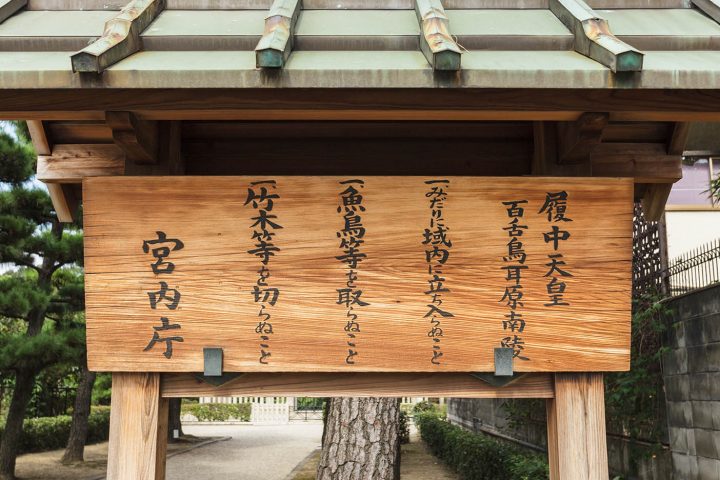 履中天皇
百舌鳥耳原南陵
一みだりに域内に立ち入らぬこと
一魚鳥等を取らぬこと
一竹木等を切らぬこと
宮内庁